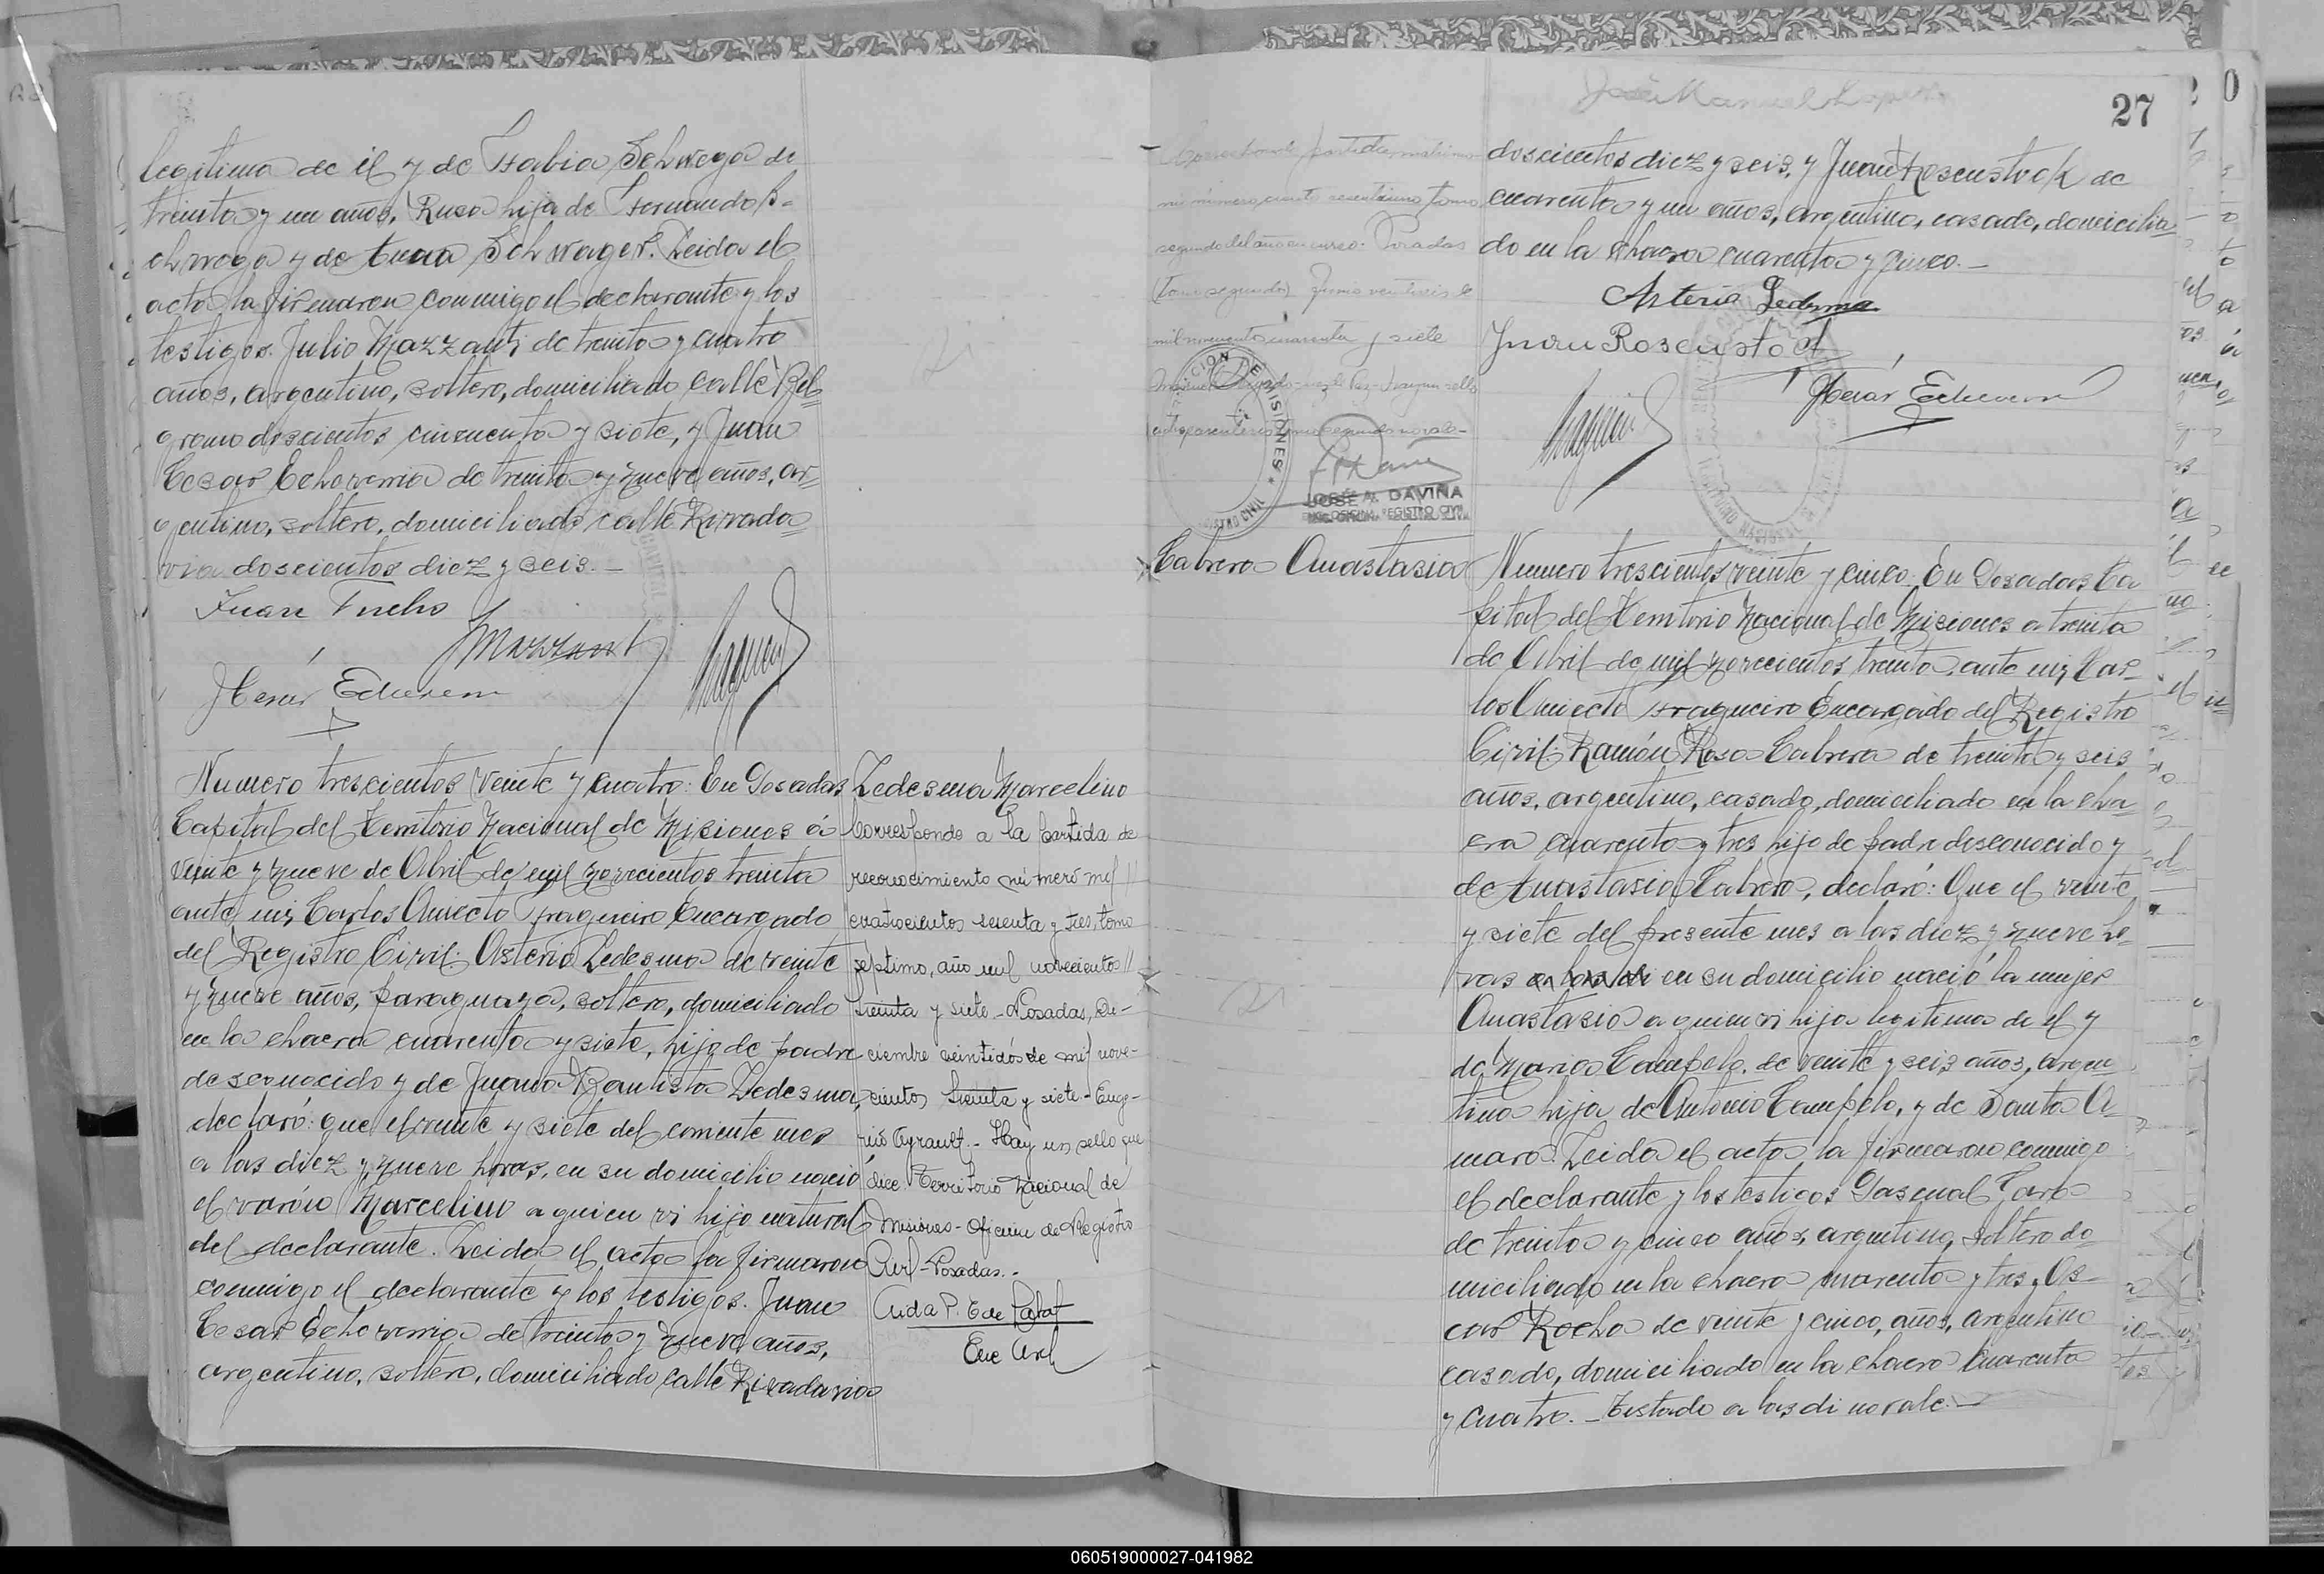 legitima de él y de Fabia Schwega de
treinta y un años, Rusa hija de Fernando S-
chwega y de Anna Schwager. Leida el
acta la firmaron conmigo el declarante y los
testigos. Julio Mazzanti de treinta y cuatro
años, argentino, soltero, domiciliado calle Bel-
grano doscientos cincuenta y siete, y Juan
Cesar Echeverria de treinta y nueve años, ar-
gentino, soltero, domiciliado calle Rivada-
via doscientos diez y seis.-
Juan
JMazzanti
JCesár Echeverri
Numero trescientos veinte y cuatro: En Posadas
Capital del Territorio Nacional de Misiones á
veinte y nueve de Abril de mil novecientos treinta
ante mi, Carlos Anecto Fragueiro Encargado
del Registro Civil: Asterio Ledesma de veinte
y nueve años, paraguayo, soltero, domiciliado
en la chacra cuarenta y siete, hijo de padre
desconocido y de Juana Bautista Ledesma,
declaró: que el veinte y siete del corriente mes
a las diez y nueve horas, en su domicilio nació
el varón Marcelino a quien vi hijo natural
del declarante. Leida el acta la firmaron
conmigo el declarante y los testigos. Juan
Cesar Echeverria de treinta y nueve años,
argentino, soltero, domiciliado calle Rivadavia
Ledesma Marcelino
Corresponde a la partida de
reconocimiento número mil //
cuatrocientos sesenta y tres, tomo
séptimo, año mil novecientos //
treinta y siete - Posadas, Di-
ciembre veintidós de mil nove-
cientos treinta y siete - Euge-
nio Ayrault.- Hay un sello que
dice: Territorio Nacional de
Misiones - Oficina de Registro
Civil - Posadas.-
Aida P. E de
Enc Arch
27
José Manuel
Corresponde partida matrimo-
nio número ciento sesentaiuno tomo
segundo del año en curso. Posadas
(tomo segundo) Junio veintiseis de
mil novecientos cuarenta y siete
entreparentesis tomo segundo no vale-
JOSÉ A. DAVIÑA
ENC. OFICINA REGISTRO CIVIL
doscientos diez y seis, y Juan Rosenstock de
cuarenta y un años, argentino, casado, domicilia-
do en la chacra cuarenta y cinco.-
Asterio Ledesma
Juan Rosenstock
JCesár Echeverri
Cabrera Anastasia
Numero trescientos veinte y cinco: En Posadas Ca
pital del Territorio Nacional de Misiones a treinta
de Abril de mil novecientos treinta, ante mi, Car-
los Anecto Fragueiro Encargado del Registro
Civil: Ramón Rosa Cabrera de treinta y seis
años, argentino, casado, domiciliado en la cha-
cra cuarenta y tres hijo de padre desconocido y
de Anastasia Cabrera, declaró: Que el veinte
y siete del presente mes a las diez y nueve ho-
ras a las di en su domicilio nació la mujer
Anastasia a quien vi hija legitima de él y
de Maria Campelo, de veinte y seis años, argen
tina hija de Antonio Campelo, y de Santa A-
maro. Leida el acta la firmaron conmigo
el declarante y los testigos Pascual
de treinta y cinco años, argentino, soltero do-
miciliado en la chacra cuarenta y tres, Os-
car Rocha de veinte y cinco, años, argentino
casado, domiciliado en la chacra cuarenta
y cuatro.- Testado a las di no vale.-
060519000027-041982